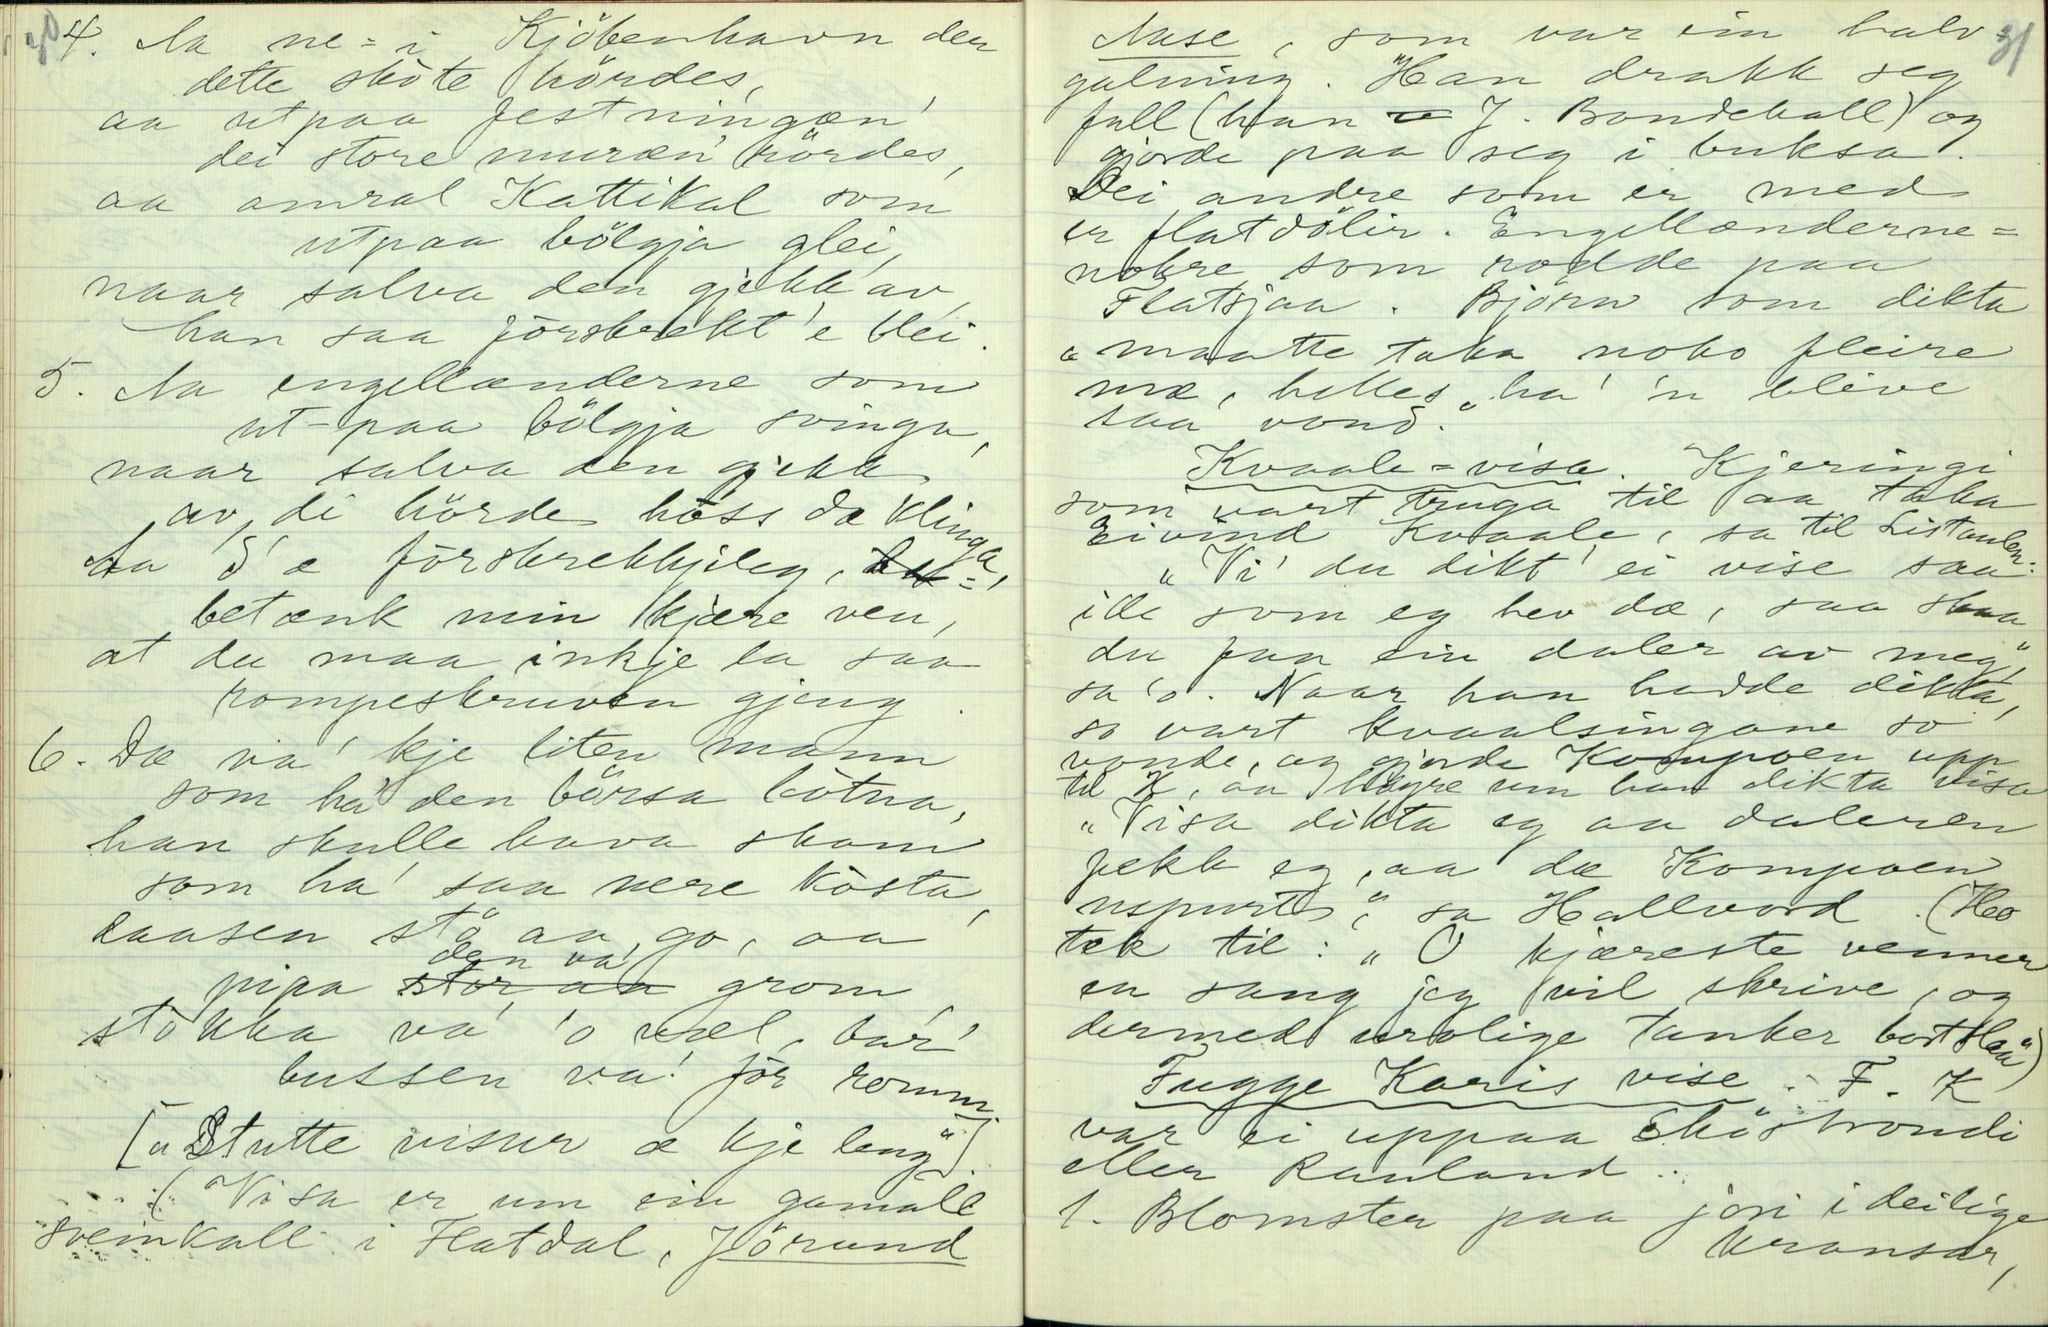 30
4. Aa ne=i Kjöbenhavn der
dette sköte hördes,
aa utpaa festningæn'
dei store muræn' rördes,
aa amral Kattikal som
utpaa bölgja glei,
naar salva den gjekk av,
han saa förskrekt 'e blei.
5. Aa engellænderne som
ut-paa bölgja svinga,
naar salva den gjekk
av, di hörde höss dæ klinga,
Aa d'æ förskrekkjileg,
betænk min kjære ven,
at du maa inkje la saa
rompeskruven gjeng.
6. Dæ va' kje liten mann
som ha' den börsa lötna,
han skulle hava skam
som ha' saa nere kösta,
laasen stö aa go, aa
pipa stor, aa den va' grom
stokka va' 'o væl, bar'
bussen va' för romm.
["Stutte visur æ kje leng"]
(Visa er um ein gamall
sveinkall i Flatdal, Jörund
31
Nase, som var ein halv-
galning. "Han drakk seg
full (han J. Bondekall) og
gjorde paa seg i buksa.
Dei andre som er med
er flatdölir. Engellænderne=
nokre som rodde paa
Flatsjaa. Björn som dikta
"maatte taka noko fleire
mæ, helles "ha' 'n blive
saa vond."
Kvaale=visa. "Kjeringi
som vart truga til aa taka
Eivind Kvaale, sa til Listaulen:
"Vi' du dikt' ei vise saa
ille som eg hev dæ, saa skaa
du faa ein daler av meg",
sa 'o. Naar han hadde dikta,
so vart kvaalsingane so
vonde, og gjorde Kompoen upp
til H, aa högre um han dikta visa
"Visa dikta eg aa daleren
fekk eg, aa dæ Kompoen
uspurt", sa Hallvord. (Ho
tek til: "O kjæreste venner
en sang jeg vil skrive, og
dermed urolige tanker bortslaa")
Fugge Karis vise. F. K
var ei uppaa Sköstrondi
eller Rauland.
1. Blomster paa jori i deilige
kransar,